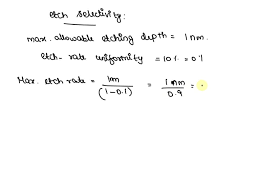 etch selectivity:
max. allowable etching depth = 1 nm.
etch-rate uniformity = 10% = 0%
Max. etch rate = 1m/(1-0.1) = 1 nm/0.9 =